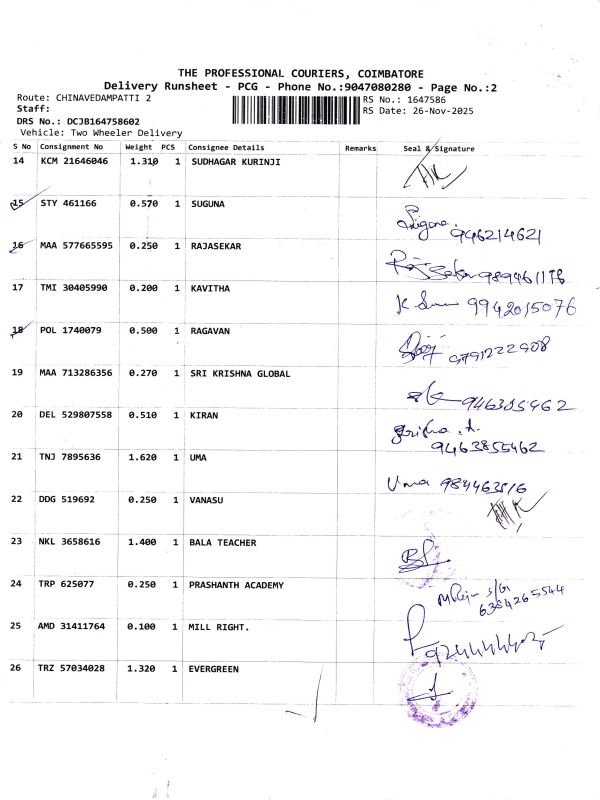 THE PROFESSIONAL COURIERS, COIMBATORE
Delivery Runsheet - PCG - Phone No.:9047080280 - Page No.:2
Route: CHINAVEDAMPATTI 2
RS No.: 1647586
Staff:
RS Date: 26-Nov-2025
DRS No.: DCJB164758602
Vehicle: Two Wheeler Delivery
S No Consignment No Weight PCS Consignee Details Remarks Seal & Signature
14 KCM 21646046 1.310 1 SUDHAGAR KURINJI
15 STY 461166 0.570 1 SUGUNA
946214621
16 MAA 577665595 0.250 1 RAJASEKAR
17 TMI 30405990 0.200 1 KAVITHA
9942015076
18 POL 1740079 0.500 1 RAGAVAN
9791222908
19 MAA 713286356 0.270 1 SRI KRISHNA GLOBAL
946385462
20 DEL 529807558 0.510 1 KIRAN
9463855462
21 TNJ 7895636 1.620 1 UMA
Uma 984463516
22 DDG 519692 0.250 1 VANASU
23 NKL 3658616 1.400 1 BALA TEACHER
24 TRP 625077 0.250 1 PRASHANTH ACADEMY
6384265544
25 AMD 31411764 0.100 1 MILL RIGHT.
26 TRZ 57034028 1.320 1 EVERGREEN